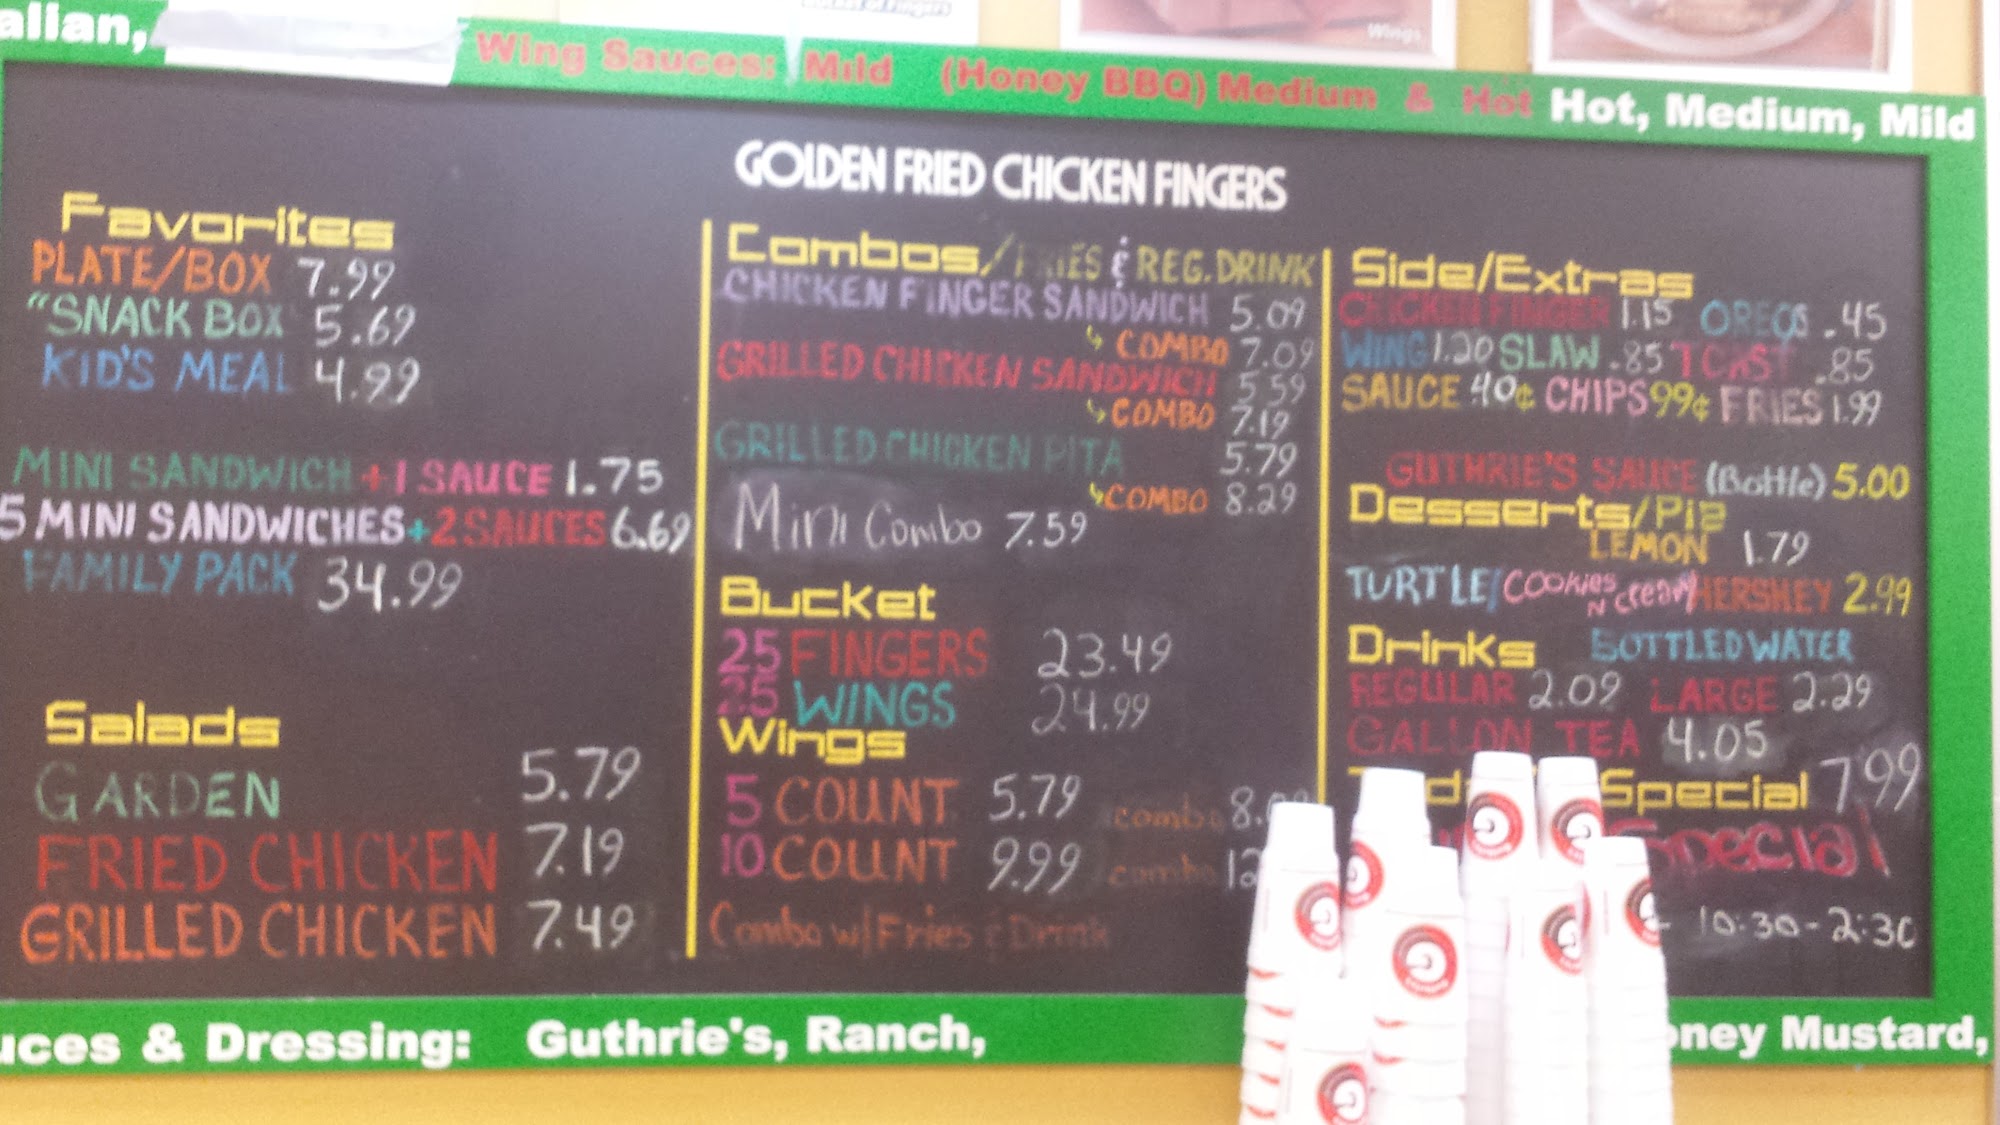 Bucket of Fingers
Wings
Wing Sauces: Mild (Honey BBQ) Medium & Hot Hot, Medium, Mild
GOLDEN FRIED CHICKEN FINGERS
Favorites
PLATE/BOX 7.99
"SNACK BOX 5.69
KID'S MEAL 4.99
MINI SANDWICH +1 SAUCE 1.75
5 MINI SANDWICHES+2 SAUCES 6.69
FAMILY PACK 34.99
Salads
GARDEN 5.79
FRIED CHICKEN 7.19
GRILLED CHICKEN 7.49
Combos/FRIES & REG. DRINK
CHICKEN FINGER SANDWICH 5.09
COMBO 7.09
GRILLED CHICKEN SANDWICH 5.59
COMBO 7.19
GRILLED CHICKEN PITA 5.79
COMBO 8.29
Mini Combo 7.59
Bucket
25 FINGERS 23.49
25 WINGS 24.99
Wings
5 COUNT 5.79 combo
10 COUNT 9.99 combo
Combo w/Fries & Drink
Side/Extras
CHICKEN FINGER 1.15 OREOS .45
WING 1.20 SLAW .85 TOAST .85
SAUCE .40¢ CHIPS 99¢ FRIES 1.99
GUTHRIE'S SAUCE (Bottle) 5.00
Desserts/Pie
LEMON 1.79
TURTLE/COOKIES N Cream/HERSHEY 2.99
Drinks BOTTLED WATER
REGULAR 2.09 LARGE 2.29
GALLON TEA 4.05
Special 7.99
Special
10:30-2:30
& Dressing: Guthrie's, Ranch, Mustard,